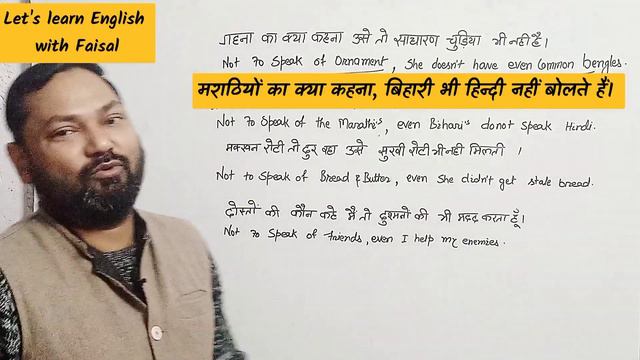 Let's learn English
with Faisal
गहना का क्या कहना उसे तो साधारण चुड़िया भी नहीं है।
Not To Speak of Ornament, She doesn't have even Common bengles.
मराठियों का क्या कहना, बिहारी भी हिन्दी नहीं बोलते हैं।
Not To Speak of the Marathi's, even Bihari's donot Speak Hindi.
मक्खन रोटी तो दूर वहा उसे सुखी रोटी भी नहीं मिलती ।
Not to Speak of Bread & Butter, even She didn't get stale bread.
दोस्तों की कौन कहे मैं तो दुश्मनों की भी मदद करता हूँ।
Not To Speak of friends, even I help my enemies.